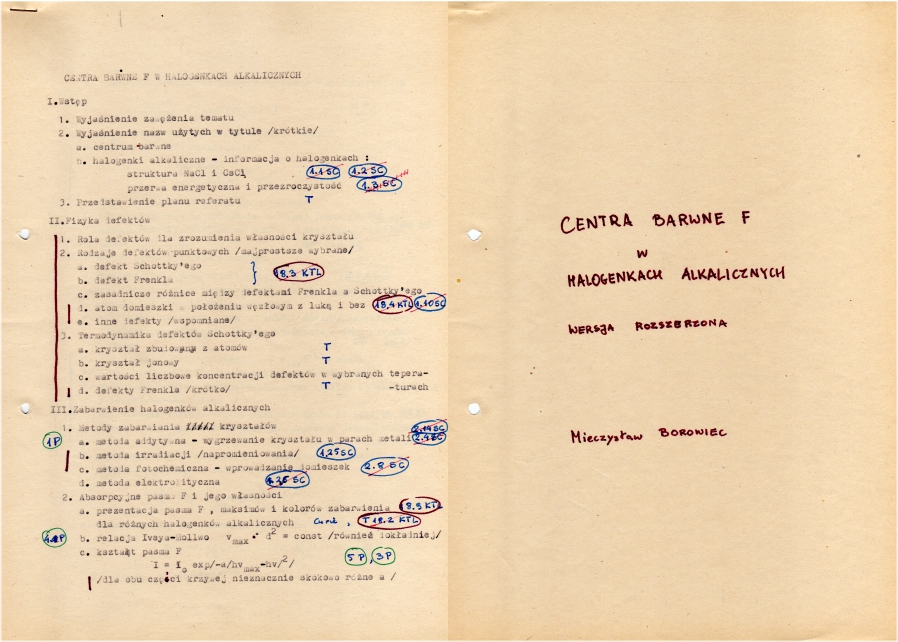 CENTRA BARWNE F W HALOGENKACH ALKALICZNYCH
I.Wstęp
1. Wyjaśnienie zawężenia tematu
2. Wyjaśnienie nazw użytych w tytule /krótkie/
a. centrum barwne
b. halogenki alkaliczne - informacja o halogenkach :
struktura NaCl i CsCl 1.1 SC 1.2 SC
przerwa energetyczna i przezroczystość 1.3 SC
3. Przedstawienie planu referatu T
II.Fizyka defektów
1. Rola defektów dla zrozumienia własności kryształu
2. Rodzaje defektów punktowych /najprostsze wybrane/
a. defekt Schottky'ego
b. defekt Frenkla } 18.3 KTL
c. zasadnicze różnice między defektami Frenkla a Schottky'ego
d. atom domieszki w położeniu węzłowym z luką i bez 18.4 KTL 1.10 SC
e. inne defekty /wspomniane/
3. Termodynamika defektów Schottky'ego
a. kryształ zbudowany z atomów T
b. kryształ jonowy T
c. wartości liczbowe koncentracji defektów w wybranych tepera-
d. defekty Frenkla /krótko/ T -turach
III.Zabarwienie halogenków alkalicznych
1. Metody zabarwiania kryształów 2.14 SC
1P a. metoda addytywna - wygrzewanie kryształu w parach metali
b. metoda irradiacji /napromieniowania/ 1.25 SC
c. metoda fotochemiczna - wprowadzanie domieszek 2.8 SC
d. metoda elektrolityczna 1.26 SC
2. Absorpcyjne pasmo F i jego własności
a. prezentacja pasma F , maksimów i kolorów zabarwienia 18.5 KTL
dla różnych halogenków alkalicznych , T 18.2 KTL
b. relacja Ivaya-Mollwo νmax · d² = const /również dokładniej/
c. kształt pasma F 5P , 3P
I = I₀ exp/-a/hνmax-hν/²/
/dla obu części krzywej nieznacznie skokowo różne a /
CENTRA BARWNE F
W
HALOGENKACH ALKALICZNYCH
WERSJA ROZSZERZONA
Mieczysław BOROWIEC